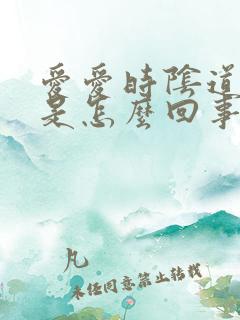 愛愛時陰道
是怎麼回事
凡
未经同意禁止转载